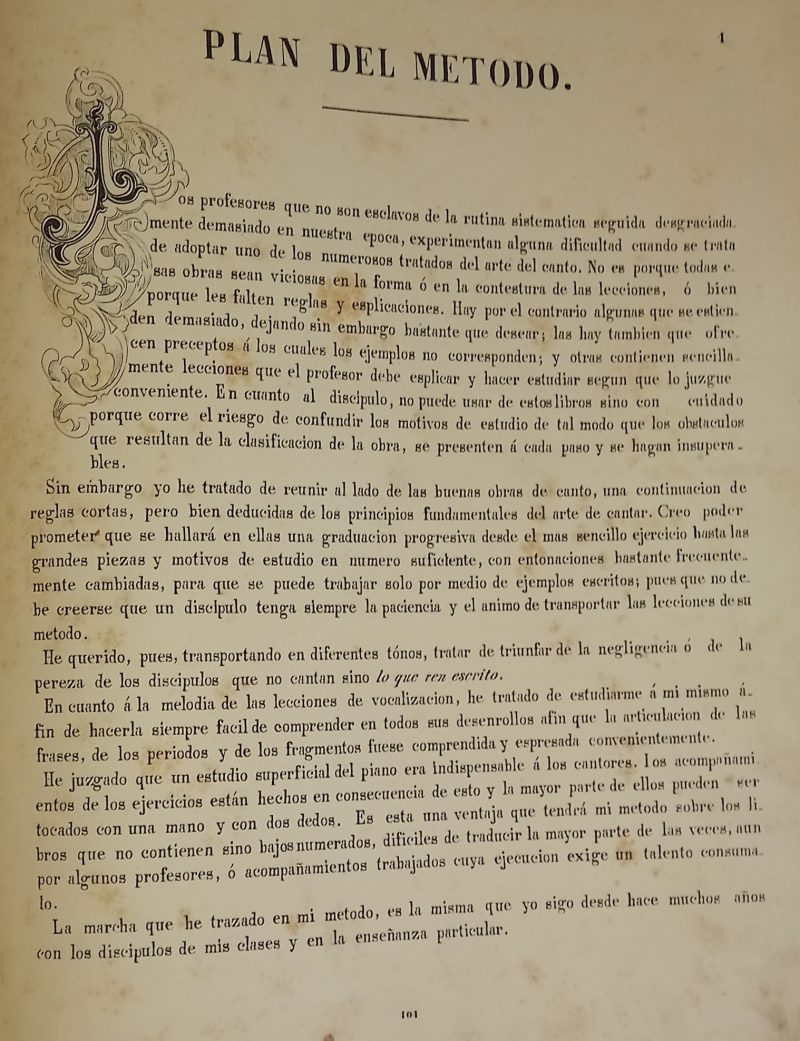 1
PLAN DEL METODO.
Los profesores que no son esclavos de la rutina sistematica seguida desgraciada-
mente demasiado en nuestra epoca, experimentan alguna dificultad cuando se trata
de adoptar uno de los numerosos tratados del arte del canto. No es porque todas e-
sas obras sean viciosas en la forma ó en la contestura de las lecciones, ó bien
porque les falten reglas y esplicaciones. Hay por el contrario algunas que se estien-
den demasiado, dejando sin embargo bastante que desear; las hay tambien que ofre-
cen preceptos á los cuales los ejemplos no corresponden; y otras contienen sencilla-
mente lecciones que el profesor debe esplicar y hacer estudiar segun que lo juzgue
conveniente. En cuanto al discipulo, no puede usar de estos libros sino con cuidado
porque corre el riesgo de confundir los motivos de estudio de tal modo que los obstaculos
que resultan de la clasificacion de la obra, se presenten á cada paso y se hagan insupera-
bles.
Sin embargo yo he tratado de reunir al lado de las buenas obras de canto, una continuacion de
reglas cortas, pero bien deducidas de los principios fundamentales del arte de cantar. Creo poder
prometer que se hallará en ellas una graduacion progresiva desde el mas sencillo ejercicio hasta las
grandes piezas y motivos de estudio en numero suficiente, con entonaciones bastante frecuente-
mente cambiadas, para que se puede trabajar solo por medio de ejemplos escritos; pues que no de-
be creerse que un discipulo tenga siempre la paciencia y el animo de transportar las lecciones de su
metodo.
He querido, pues, transportando en diferentes tónos, tratar de triunfar de la negligencia ó de la
pereza de los discipulos que no cantan sino lo que ven escrito.
En cuanto á la melodia de las lecciones de vocalizacion, he tratado de estudiarme á mi mismo á-
fin de hacerla siempre facil de comprender en todos sus desenrollos afin que la articulacion de las
frases, de los periodos y de los fragmentos fuese comprendida y espresada convenientemente.
He juzgado que un estudio superficial del piano era indispensable á los cantores. los acompañami-
entos de los ejercicios están hechos en consecuencia de esto y la mayor parte de ellos pueden ser
tocados con una mano y con dos dedos. Es esta una ventaja que tendrá mi metodo sobre los li-
bros que no contienen sino bajos numerados, dificiles de traducir la mayor parte de las veces, aun
por algunos profesores, ó acompañamientos trabajados cuya ejecucion exige un talento consuma-
lo.
La marcha que he trazado en mi metodo, es la misma que yo sigo desde hace muchos años
con los discipulos de mis clases y en la enseñanza particular.
101